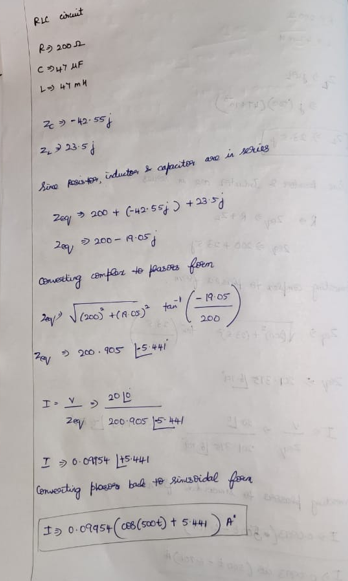 RLC circuit
R⇒ 200 Ω
C ⇒ 47 µF
L ⇒ 47 mH
Zc ⇒ -42.55j
ZL ⇒ 23.5j
Since resistor, inductor & capacitor are in series
Zeq ⇒ 200 + (-42.55j) + 23.5j
Zeq ⇒ 200 - 19.05j
Converting complex to phasors form
Zeq ⇒ √(200)² + (19.05)² tan⁻¹ (-19.05/200)
Zeq ⇒ 200.905 ∠-5.441
I = V/Zeq ⇒ 20∠0/200.905∠-5.441
I ⇒ 0.09954 ∠+5.441
Converting phasors back to sinusoidal form
I ⇒ 0.09954 (cos(500t) + 5.441) A